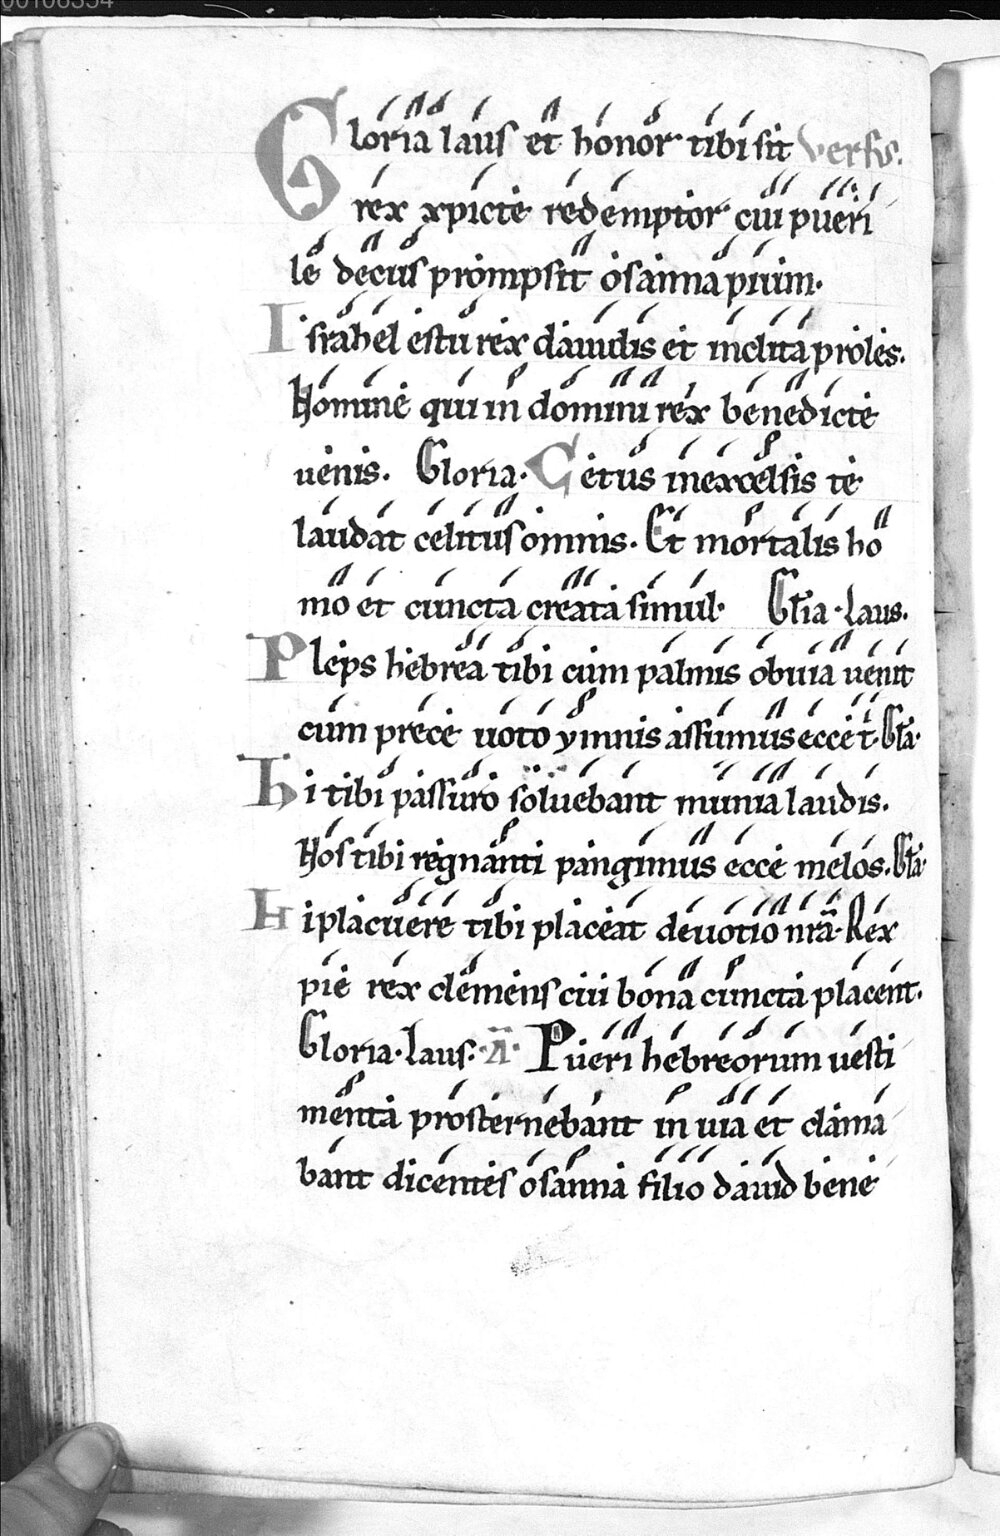 00106354
Gloria laus et honor tibi sit versus.
rex xpicte redemptor cui pueri
le decus prompsit osanna pium.
Israhel es tu rex dauidis et inclita proles.
Homine qui in domini rex benedicte
uenis. Gloria. Cetus in excelsis te
laudat celitus omnis. Et mortalis ho
mo et cuncta creata simul. Glia. laus.
Pleps hebrea tibi cum palmis obuia uenit
cum prece uoto ymnis assumus ecce t. Gla.
Hi tibi passuro soluebant munia laudis.
Nos tibi regnanti pangimus ecce melos. Gla.
Hi placuere tibi placeat deuotio nra. Rex
pie rex clemens cui bona cuncta placent.
Gloria. laus. A. Pueri hebreorum uesti
menta prosternebant in uia et clama
bant dicentes osanna filio dauid bene